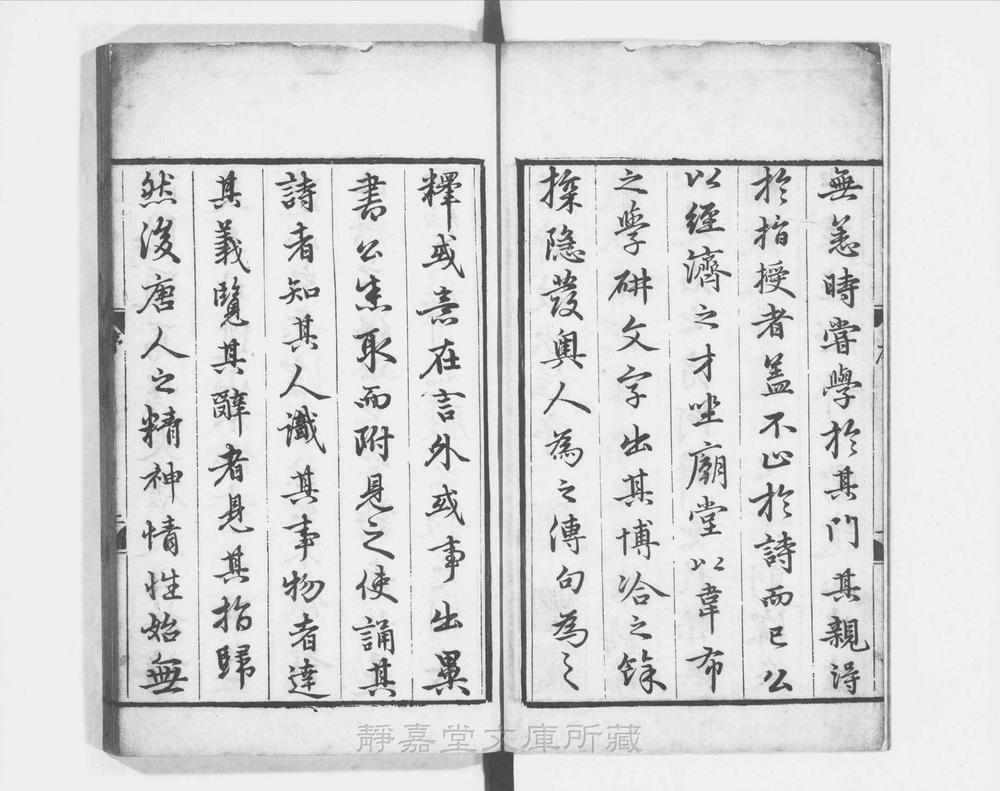 無恙時嘗學於其門其親得
於指授者盖不止於詩而已公
以經濟之才坐廟堂以韋布
之學研文字出其博洽之餘
探隐發奥人為之傳句為之
釋或意在言外或事出異
書公悉取而附見之使誦其
詩者知其人識其事物者達
其義覽其辭者見其指歸
然後唐人之精神情性始無
靜嘉堂文庫所藏